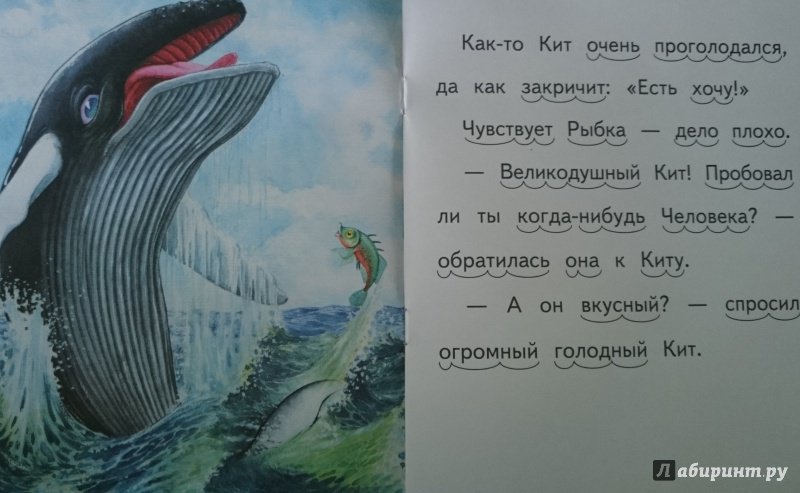 Как-то Кит очень проголодался,
да как закричит: «Есть хочу!»
Чувствует Рыбка — дело плохо.
— Великодушный Кит! Пробовал
ли ты когда-нибудь Человека? —
обратилась она к Киту.
— А он вкусный? — спросил
огромный голодный Кит.
Лабиринт.ру